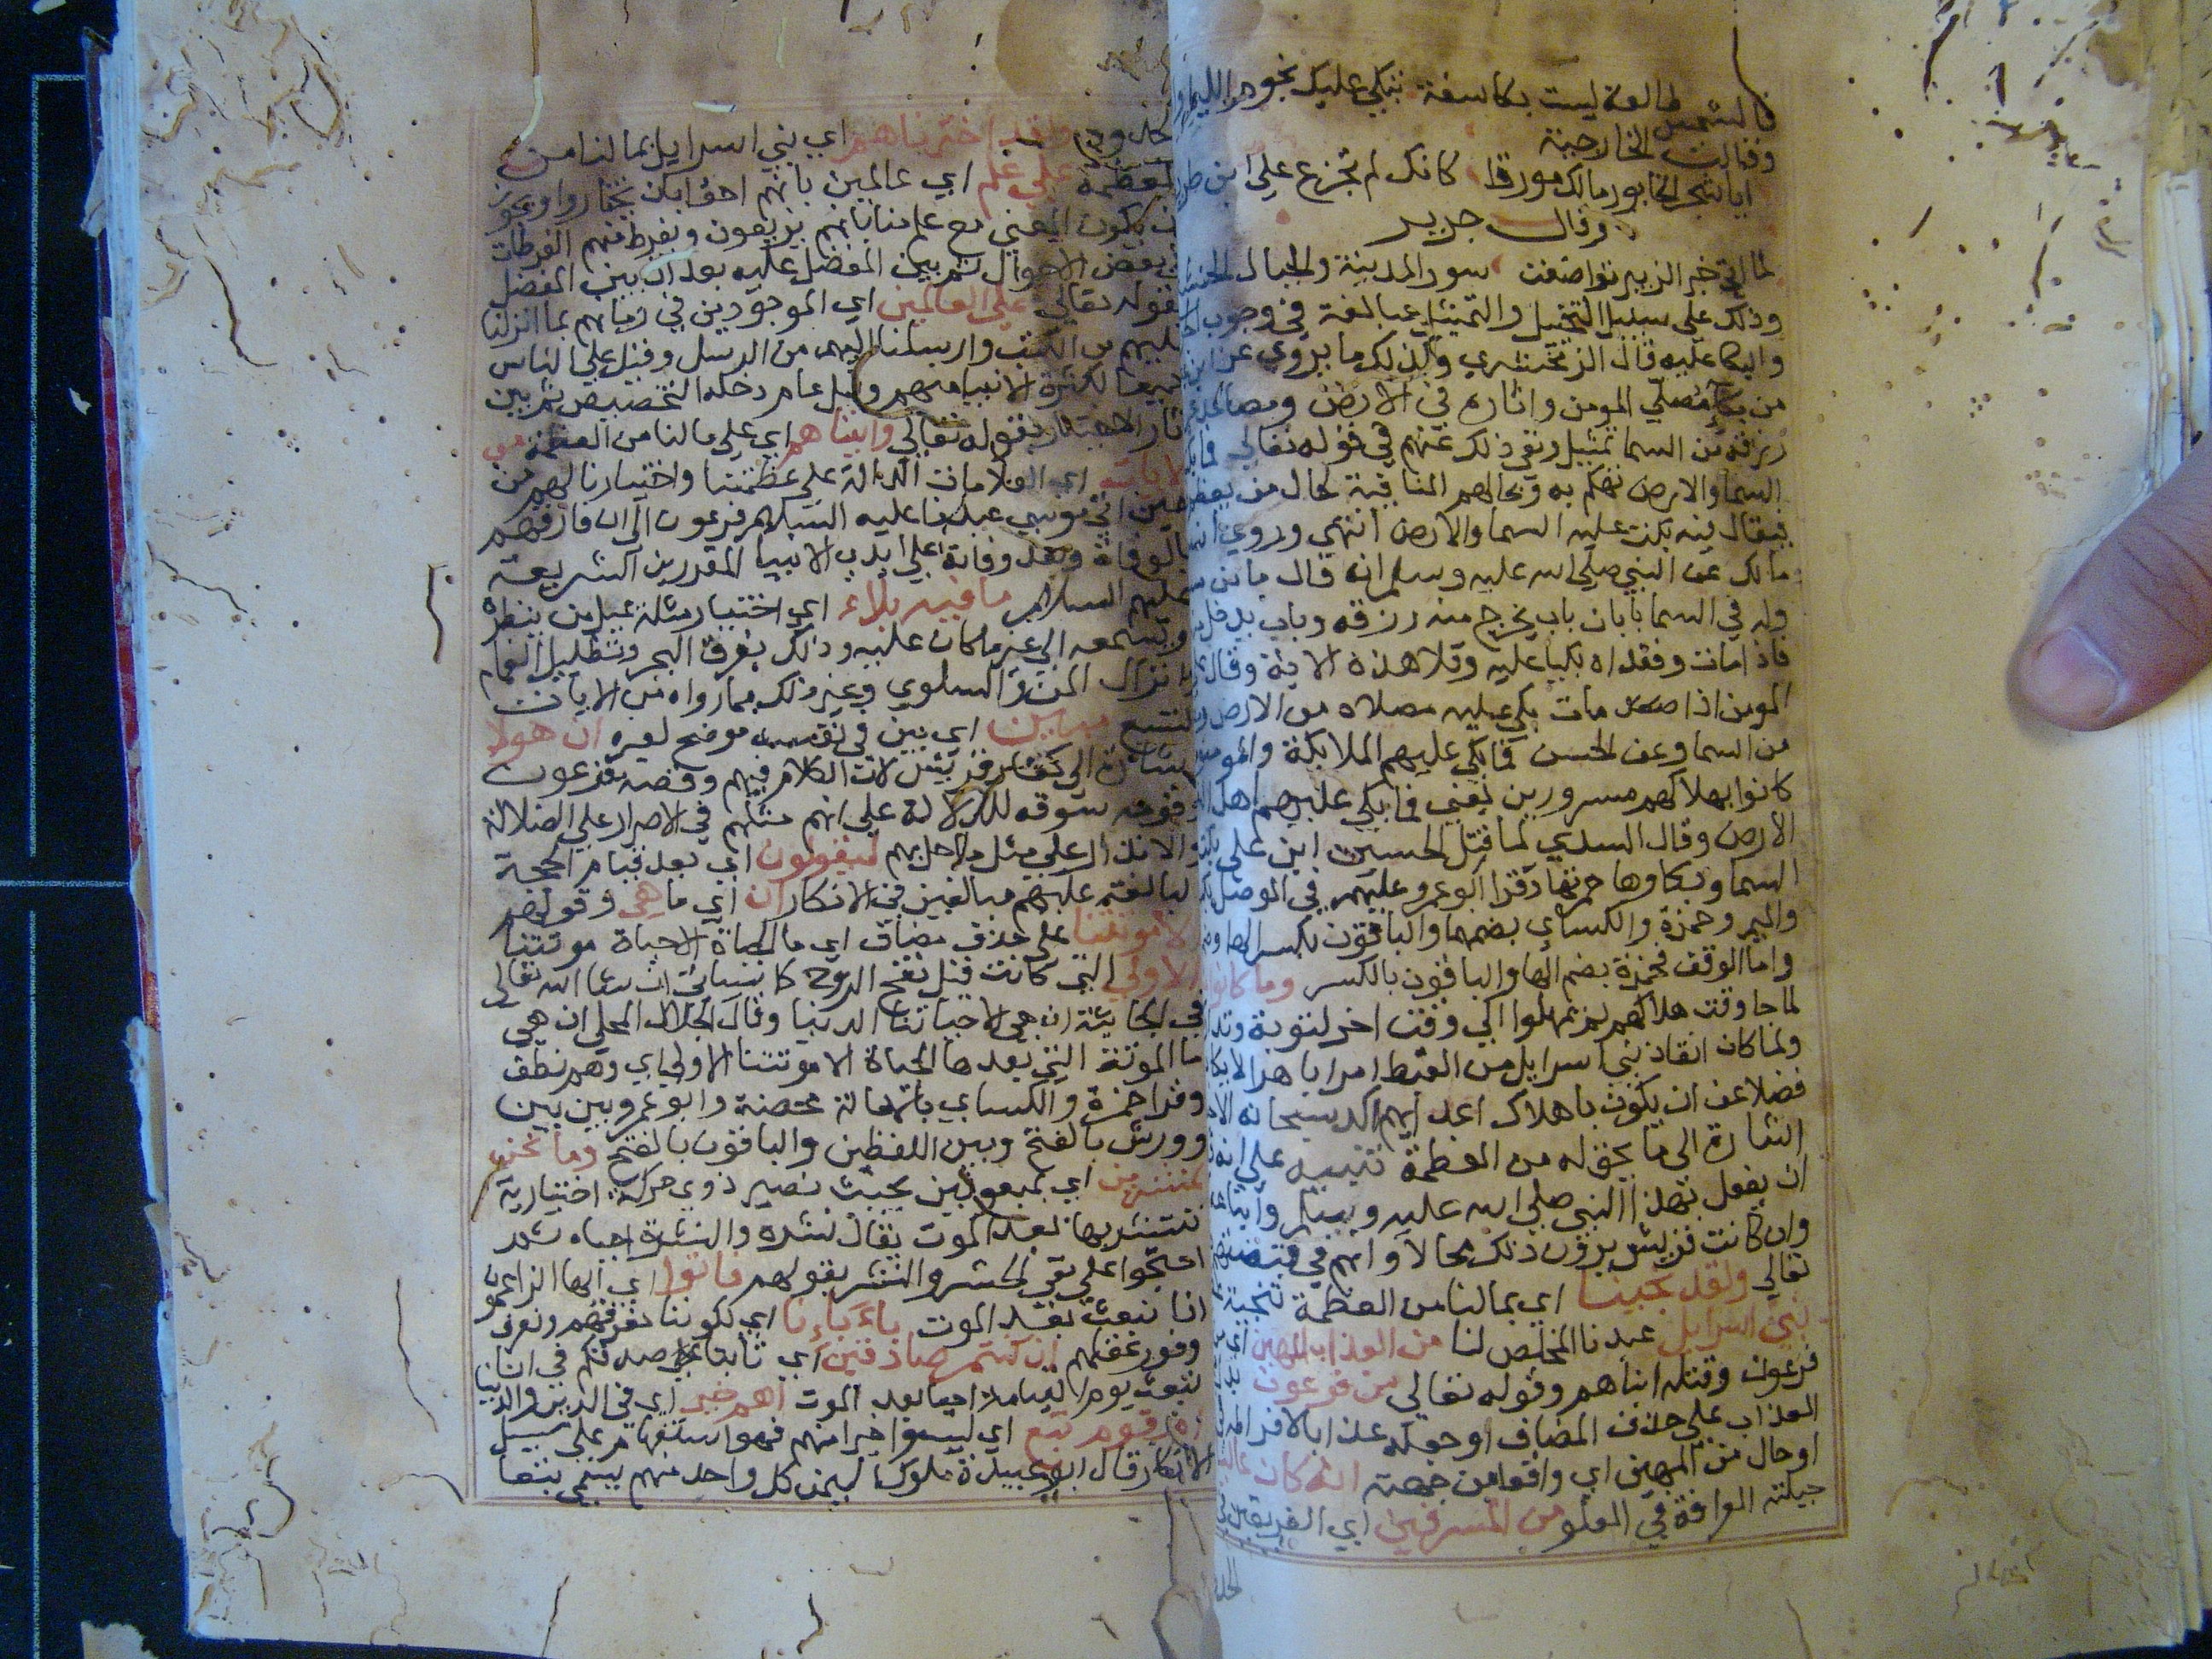 فالشمس طالعة ليست بكاسفة تبكي عليك نجوم الليل
وقالت الخارجية
ايا شجر الخابور مالك مورقا كانك لم تجزع علي ابن
وقال جرير
لما اتي خبر الزبير تواضعت سور المدينة والجبال
وذلك علي سبيل التخييل والتمثيل مبالغة في وجوب
والبكا عليه قال الزمخشري وكذلك ما يروي عن
من بكا مصلي المومن واثاره في الارض ومصاعد
رزقه من السما تمثيل ونفي ذلك عنهم في قوله تعالي فما
السما والارض تهكم به وبحالهم المنافية لحال من
فيقال فيه بكت عليه السما والارض انتهي وروي
مالك عن النبي صلي الله عليه وسلم انه قال ما من
وله في السما بابان باب يخرج منه رزقه وباب يدخل
فاذا مات وفقداه بكيا عليه وتلا هذه الاية وقال
المومن اذا مات بكي عليه مصلاه من الارض
من السما وعن الحسن فما بكي عليهم الملايكة والمومنون
كانوا بهلاكهم مسرورين يعني فما بكي عليهم اهل
الارض وقال السدي لما قتل الحسين ابن علي
السما وبكاوها حمرتها وقرا ابو عمرو عليهم في الوصل
والميم وحمزة والكساي بضمهما والباقون بكسر الها
واما الوقف فحمزة بضم الها والباقون بالكسر وما كانوا
لما جا وقت هلاكهم لم يمهلوا الي وقت اخر لتوبة
ولما كان انقاذ بني اسرايل من القبط امرا باهرا لا
فضلا عن ان يكون باهلاك اعدايهم اكد سبحانه
اشارة الي ما يحق له من العظمة تنبيه علي
ان يفعل بهذا النبي صلي الله عليه وسلم
وان كانت قريش يرون ذلك محالا وانهم في
تعالي ولقد نجينا اي بما لنا من العظمة تنجية
بني اسرايل عبدنا المخلص لنا من العذاب المهين
فرعون وقتله ابناهم وقوله تعالي من فرعون
العذاب علي حذف المضاف او جعله عذابا لافراطه
او حال من المهين اي واقعا من جهته انه كان عاليا
جبلته العراقة في العلو من المسرفين اي الفريقين
ولقد اخترناهم اي بني اسرايل بما لنا من
العظمة علي علم اي عالمين بانهم احقا بان يختاروا ويجوز
ان يكون المعني مع علم منا بانهم يزيغون ويفرط منهم الفرطات
في بعض الاحوال ثم بين المفضل عليه بعد ان بين المفضل
بقوله تعالي علي العالمين اي الموجودين في زمانهم بما انزلنا
عليهم من الكتب وارسلنا اليهم من الرسل وقيل علي الناس
جميعا لكثرة الانبيا منهم وقيل عام دخله التخصيص ثم بين
اثار الاختيار بقوله تعالي واتيناهم اي علي ما لنا من العظمة من
الايات اي العلامات الدالة علي عظمتنا واختيارنا لهم من
حين اتي موسي عبدنا عليه السلام فرعون الي ان فارقهم
بالوفاة وبعد وفاته علي ايدي الانبيا المقررين الشريعة
عليهم السلام ما فيه بلاء اي اختيار مثله يميل من ينظره
ويسمعه الي غير ما كان عليه وذلك بفرق البحر وتظليل الغمام
وانزال المن والسلوي وغير ذلك مما راوه من الايات
التسع مبين اي بين في نفسه موضح لغيره ان هولا
اشارة الي كفار قريش لان الكلام فيهم وقصة فرعون
وقومه مسوقه للدلالة علي انهم مثلهم في الاصرار علي الضلالة
والانذار علي مثل ما حل بهم ليقولون اي بعد قيام الحجة
البالغة عليهم مبالغين في الانكار ان اي ما هي وقولهم
الا موتتنا علي حذف مضاف اي ما الحياة الا حياة موتتنا
الاولي التي كانت قبل نفخ الروح كما سياتي ان شا الله تعالي
في الجاثية ان هي الا حياتنا الدنيا وقال الجلال المحلي ان هي
ما الموتة التي بعدها الحياة الا موتتنا الاولي اي وهم نطف
وقرا حمزة والكساي بالامالة محضة وابو عمرو بين بين
وورش بالفتح وبين اللفظين والباقون بالفتح وما نحن
بمنشرين اي بمبعوثين بحيث نصير ذوي حركة اختيارية
ننتشر بها بعد الموت يقال نشره وانشره احياه ثم
احتجوا علي نفي الحشر والنشر بقولهم فاتوا اي ايها الزاعمون
انا نبعث بعد الموت باءباءنا اي لكوننا نعرفهم ونعرف
وفور عقلهم ان كنتم صادقين اي ثابتا صدقكم في انا
نبعث يوم القيامة احيا بعد الموت اهم خير اي في الدين والدنيا
ام قوم تبع اي ليسوا خيرا منهم فهو استفهام علي سبيل
الانكار قال ابو عبيدة ملوك اليمن كل واحد منهم يسمي تبعا